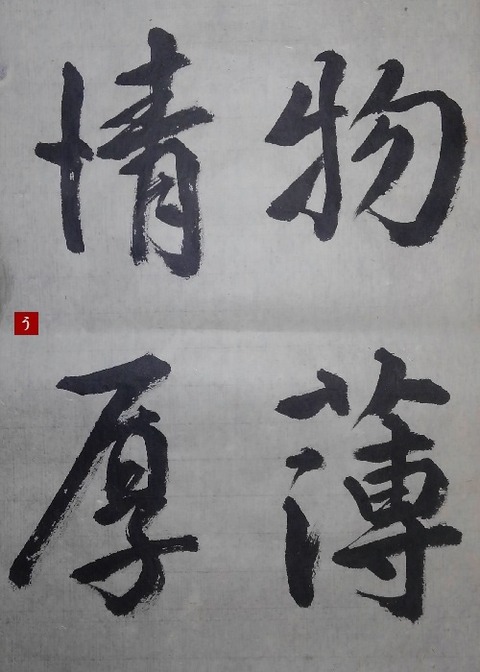 物薄
情厚
う